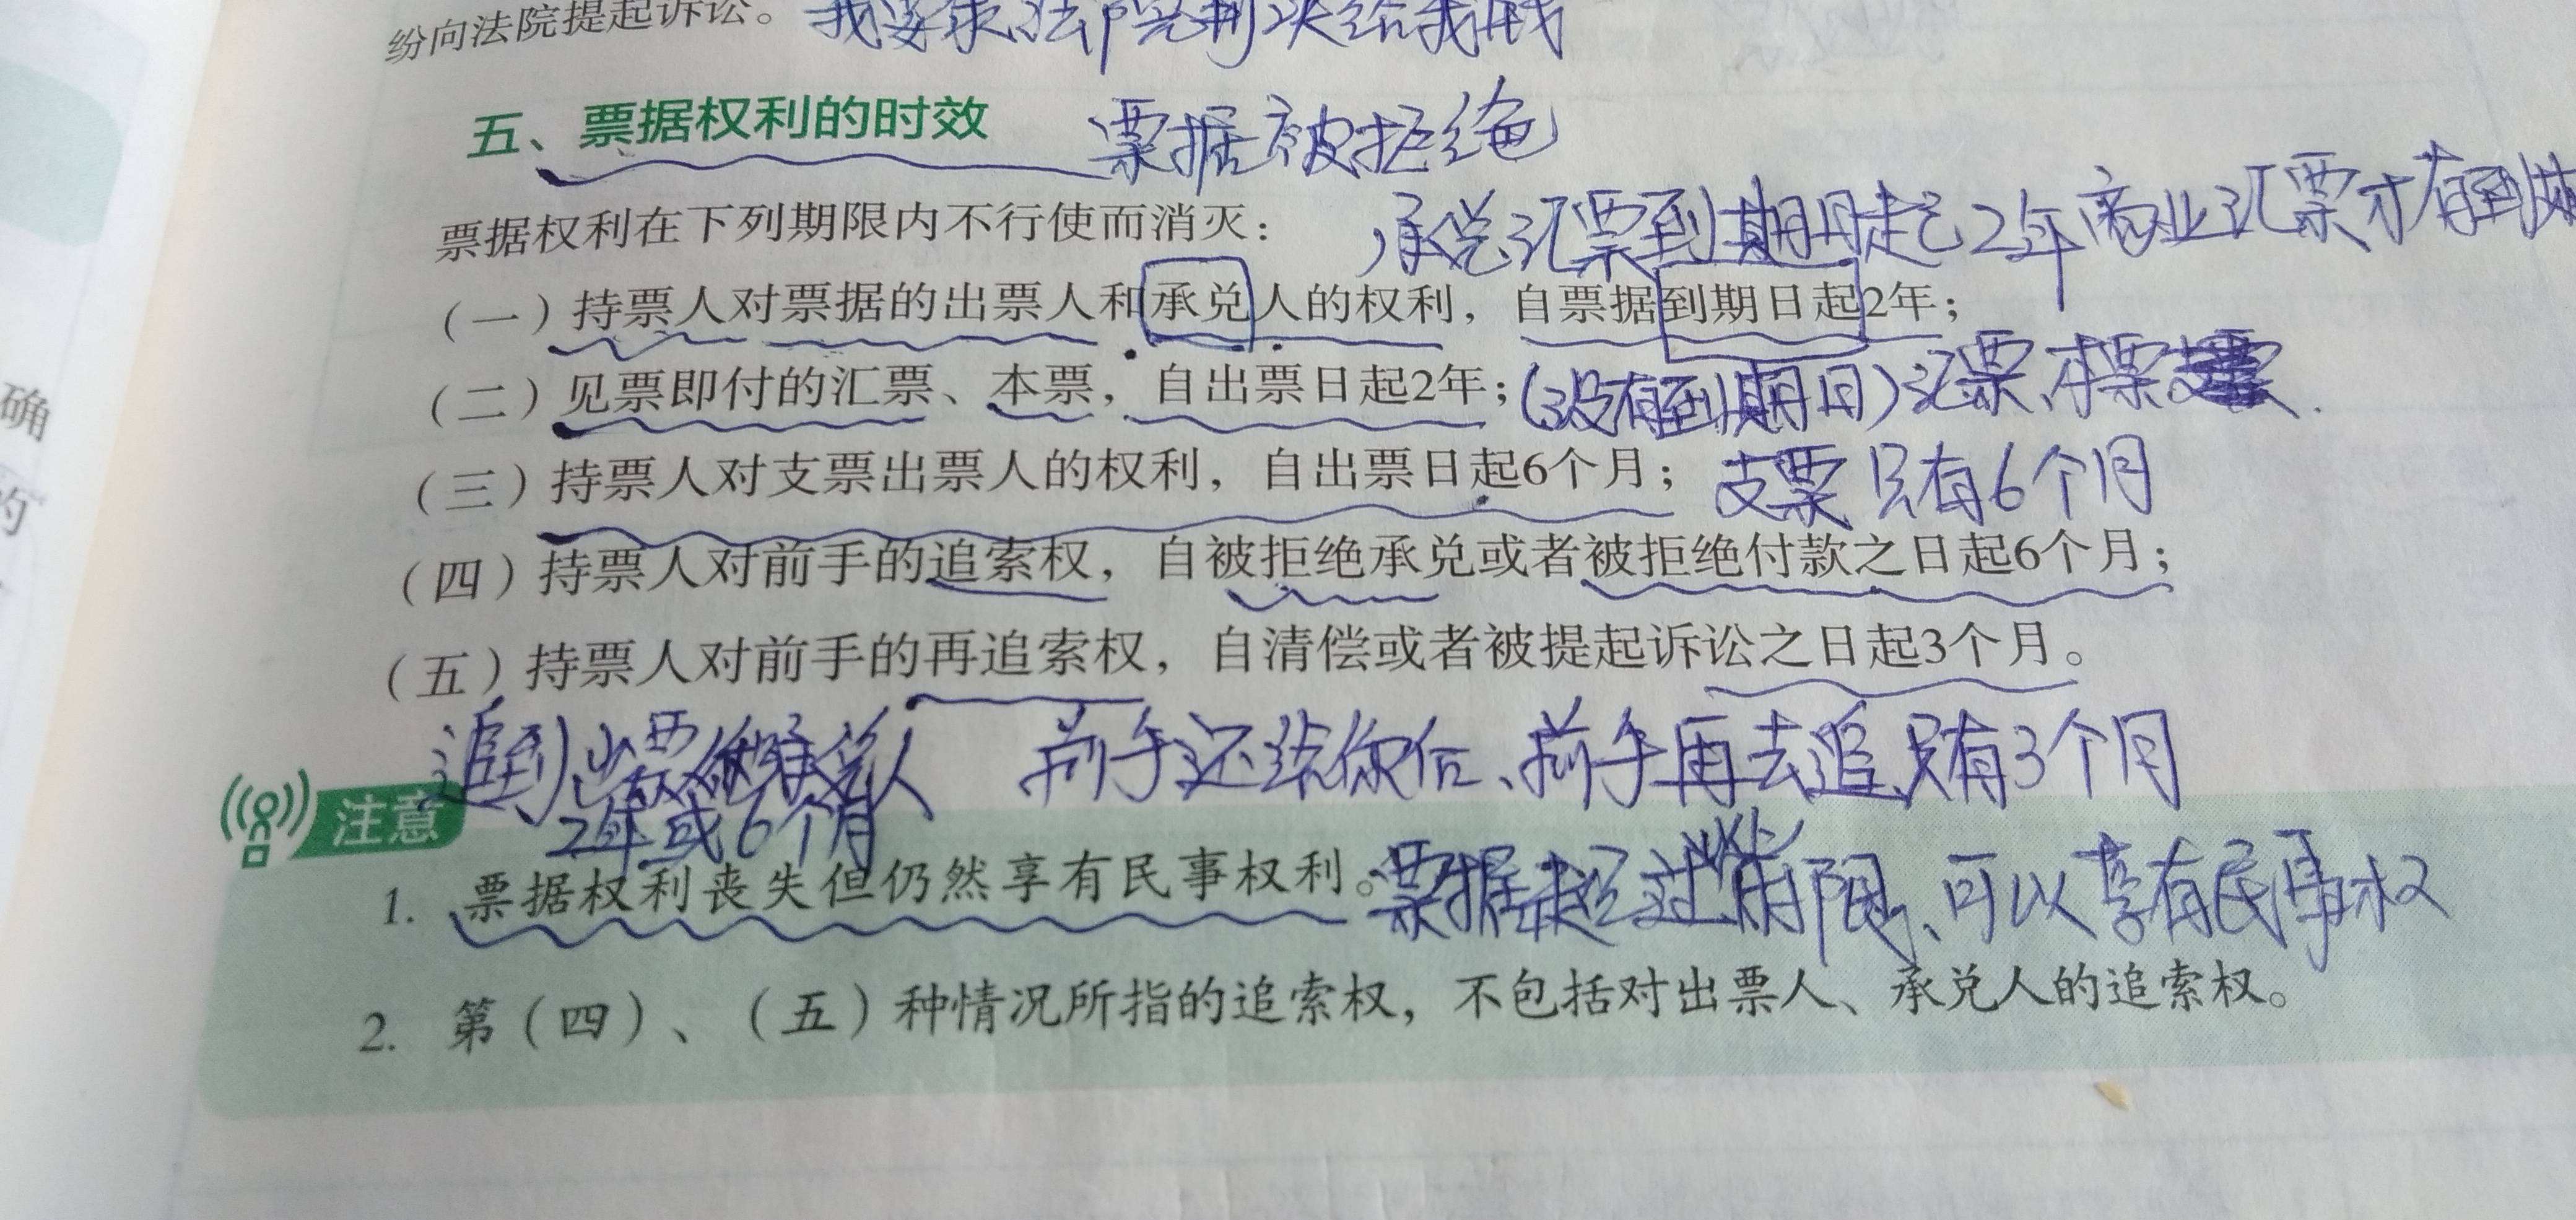 纷向法院提起诉讼。 我要求法院判决给我钱
五、票据权利的时效 票据被拒绝
票据权利在下列期限内不行使而消灭： 承兑汇票到期日起2年商业汇票才有到期
（一）持票人对票据的出票人和承兑人的权利，自票据到期日起2年；
（二）见票即付的汇票、本票，自出票日起2年；（没有到期日）汇票、本票
（三）持票人对支票出票人的权利，自出票日起6个月； 支票只有6个月
（四）持票人对前手的追索权，自被拒绝承兑或者被拒绝付款之日起6个月；
（五）持票人对前手的再追索权，自清偿或者被提起诉讼之日起3个月。
追到出票人承兑人 前手还给你后、前手再去追只有3个月
2年或6个月
注意
1. 票据权利丧失但仍然享有民事权利。票据超过期限、可以享有民事权
2. 第（四）、（五）种情况所指的追索权，不包括对出票人、承兑人的追索权。
确
的